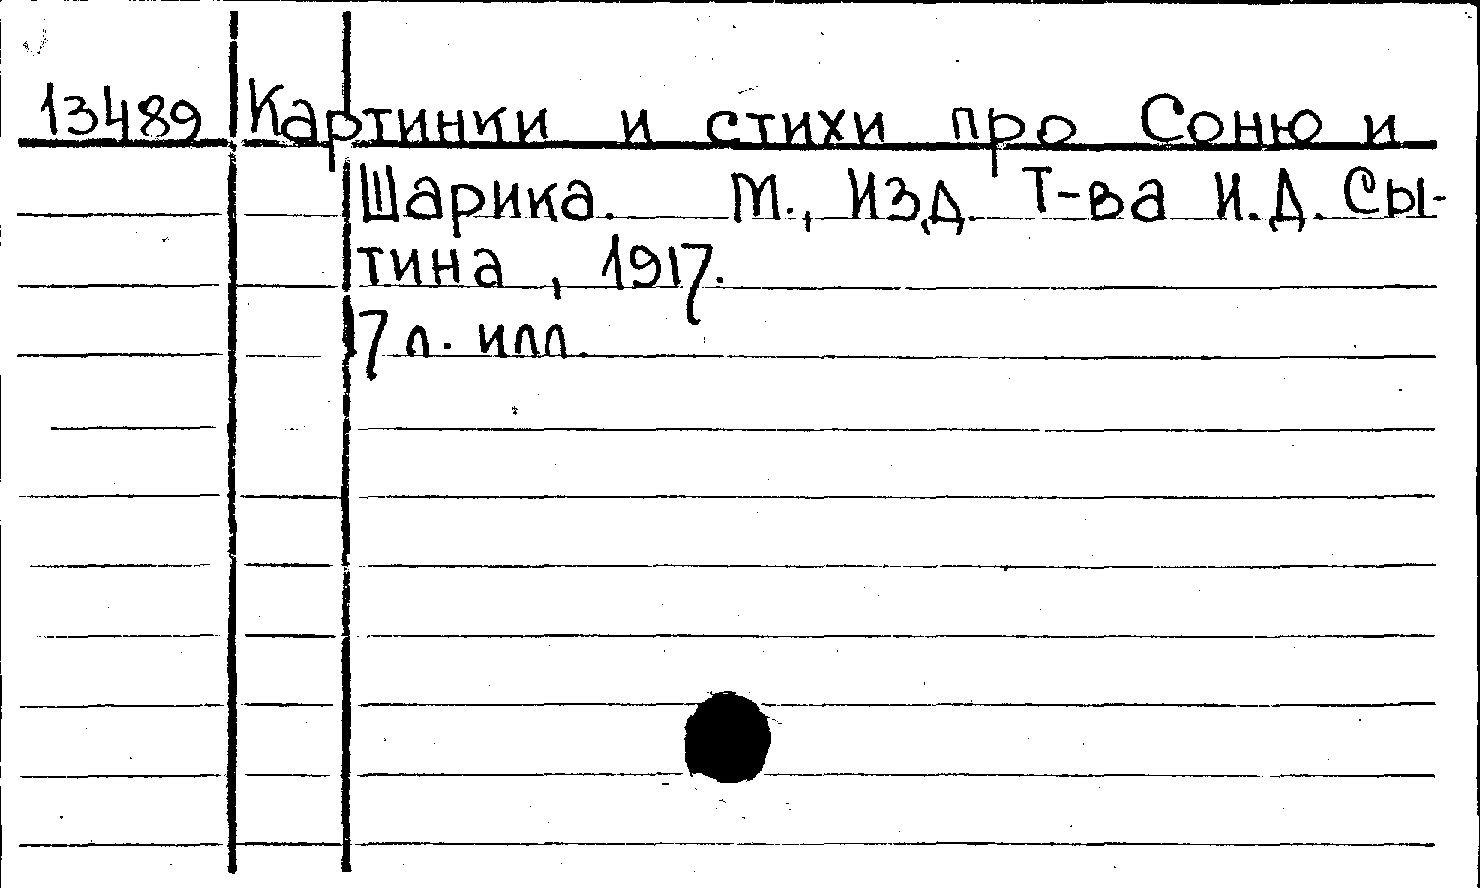 13489 Картинки и стихи про Соню и
Шарика. М., Изд. Т-ва И.Д. Сы-
тина, 1917.
7 л. илл.